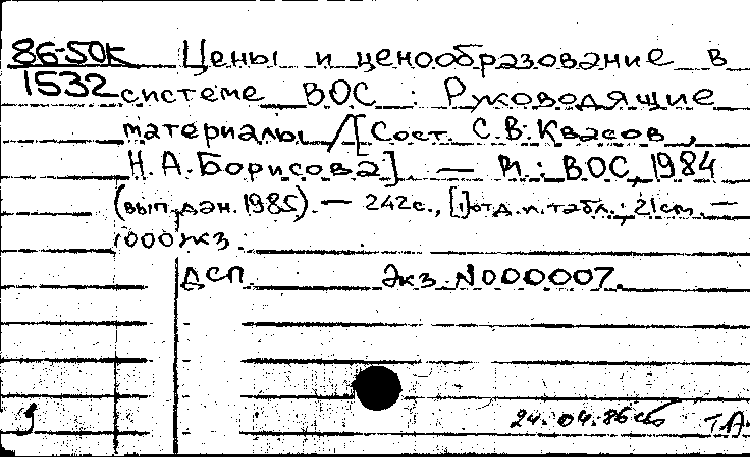 86-50к Цены и ценообразование в
1532 системе ВОС : Руководящие
материалы / [Сост. С.В. Квасов,
Н.А. Борисова]. — М. : ВОС, 1984
(вып. дан. 1985). — 242с., [1] отд. л. табл.; 21см. —
1000 экз.
ДСП Экз. N000007.
24.04.86 Т.А.